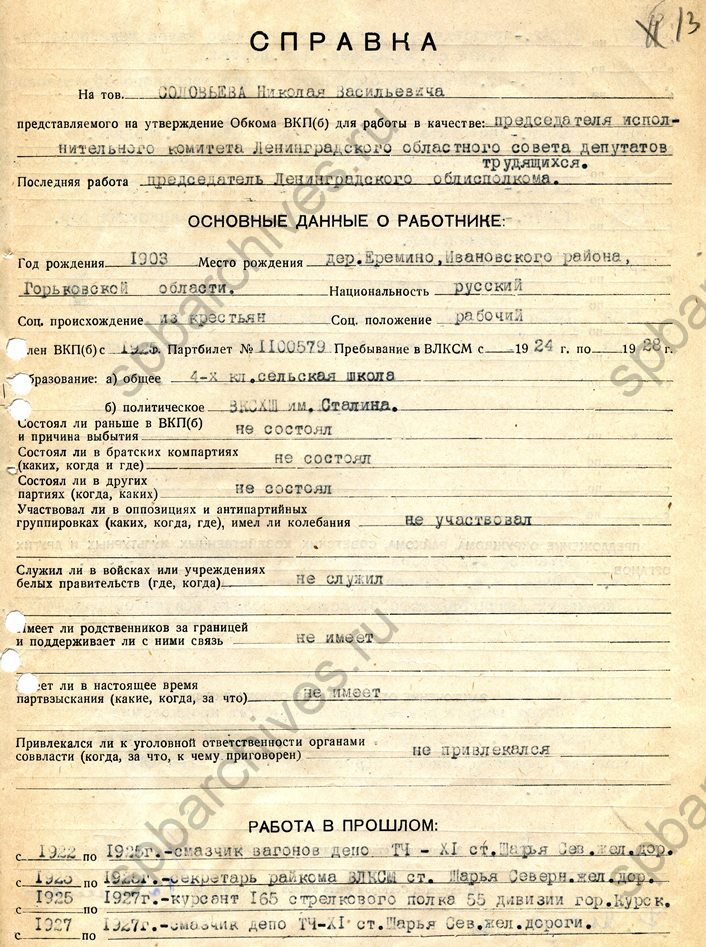 VI 13
СПРАВКА
На тов. СОЛОВЬЕВА Николая Васильевича
представляемого на утверждение Обкома ВКП(б) для работы в качестве: председателя испол-
нительного комитета Ленинградского областного совета депутатов
трудящихся.
Последняя работа председатель Ленинградского облисполкома.
ОСНОВНЫЕ ДАННЫЕ О РАБОТНИКЕ:
Год рождения 1903 Место рождения дер.Еремино,Ивановского района,
Горьковской области. Национальность русский
Соц. происхождение из крестьян Соц. положение рабочий
лен ВКП(б) с Партбилет № 1100579 Пребывание в ВЛКСМ с 1924 г. по 1928 г.
бразование: а) общее 4-х кл.сельская школа
б) политическое ВКСХШ им.Сталина.
Состоял ли раньше в ВКП(б)
и причина выбытия не состоял
Состоял ли в братских компартиях
(каких, когда и где) не состоял
Состоял ли в других
партиях (когда, каких) не состоял
Участвовал ли в оппозициях и антипартийных
группировках (каких, когда, где), имел ли колебания не участвовал
Служил ли в войсках или учреждениях
белых правительств (где, когда) не служил
меет ли родственников за границей
и поддерживает ли с ними связь не имеет
ет ли в настоящее время
партвзыскания (какие, когда, за что) не имеет
Привлекался ли к уголовной ответственности органами
соввласти (когда, за что, к чему приговорен) не привлекался
РАБОТА В ПРОШЛОМ:
с 1922 по 1925г.-смазчик вагонов депо ТЧ - XI ст.Шарья Сев.жел.дор.
с 1925 по -секретарь райкома ВЛКСМ ст. Шарья Северн.жел.дор.
с 1925 по 1927г.-курсант 165 стрелкового полка 55 дивизии гор.Курск.
с 1927 по 1927г.-смазчик депо ТЧ-XI ст.Шарья Сев.жел.дороги.
spbarchives.ru
spbarchives.ru